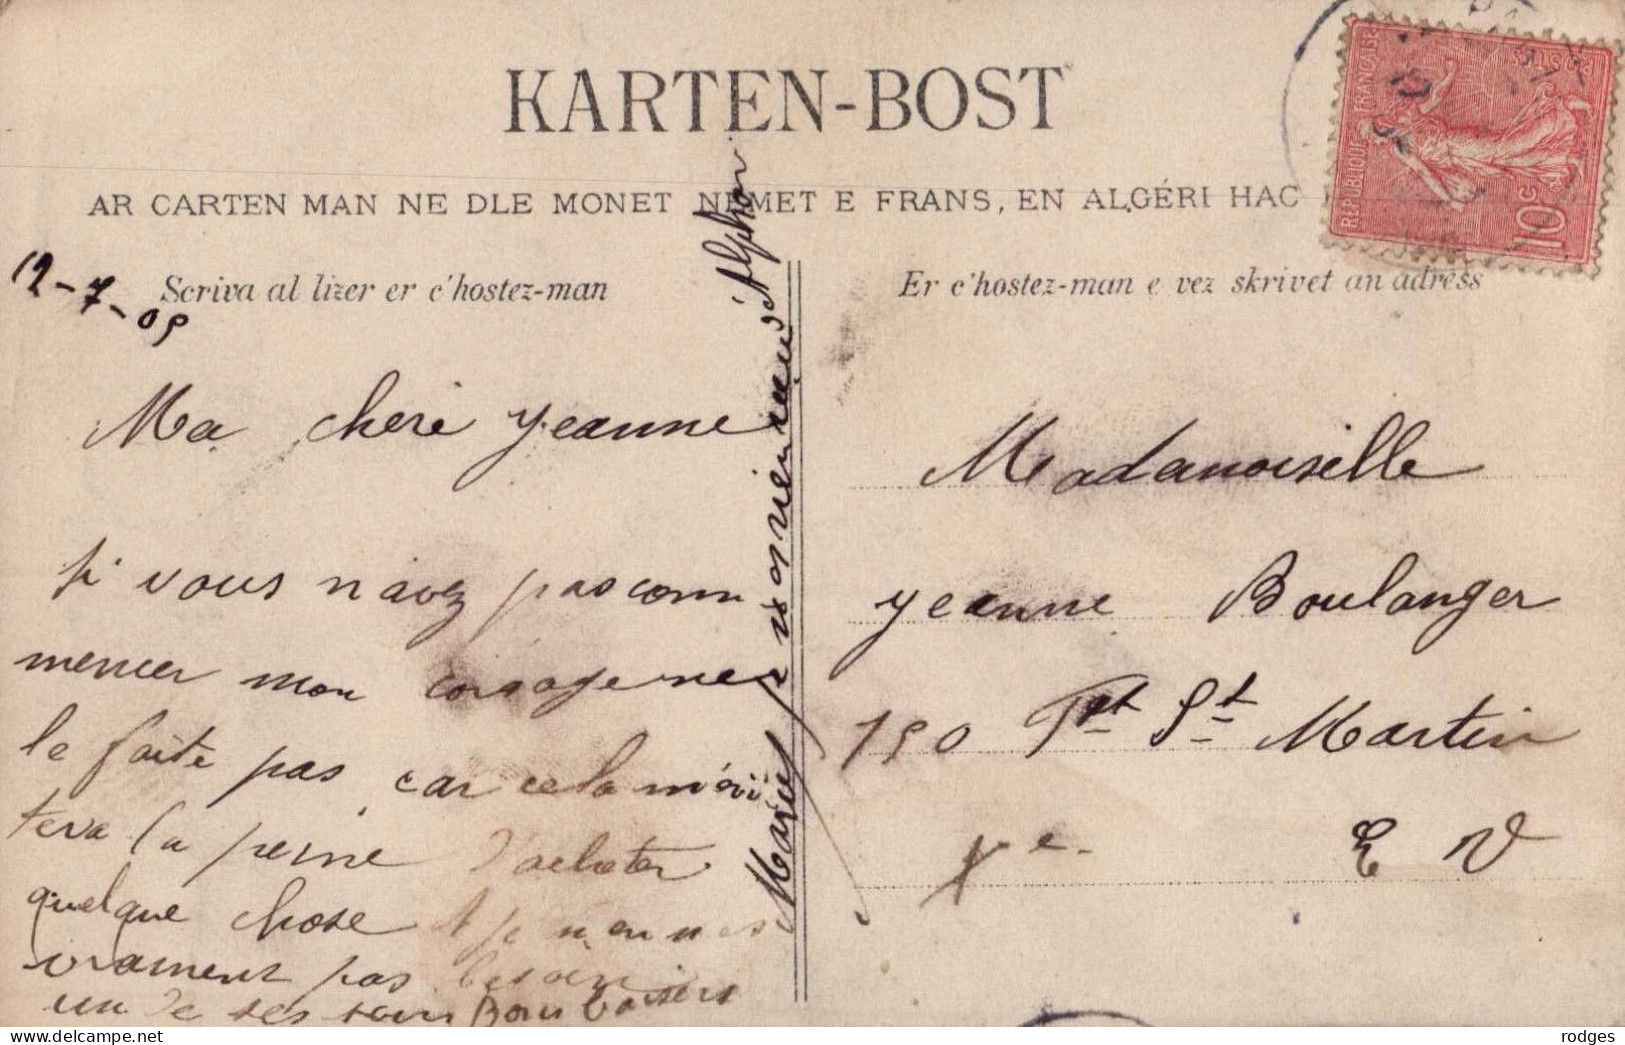 KARTEN-BOST
AR CARTEN MAN NE DLE MONET NEMET E FRANS, EN ALGÉRI HAC
Scriva al lizer er c'hostez-man
Er c'hostez-man e vez skrivet an adrèss
REPUBLIQUE FRANÇAISE
POSTES
10c
12-7-05
Ma cheri yeanne
si vous n'avez pas com
mencer mon corsage ne
le faite pas car cela m'évi
tera la peine d'acheter
quelque chose et je n'en n'es
vraiment pas besoin
un de ses soirs Bons baisers
Madamoiselle
yeanne Boulanger
190 St Martin
E V
delcampe.net
rodges